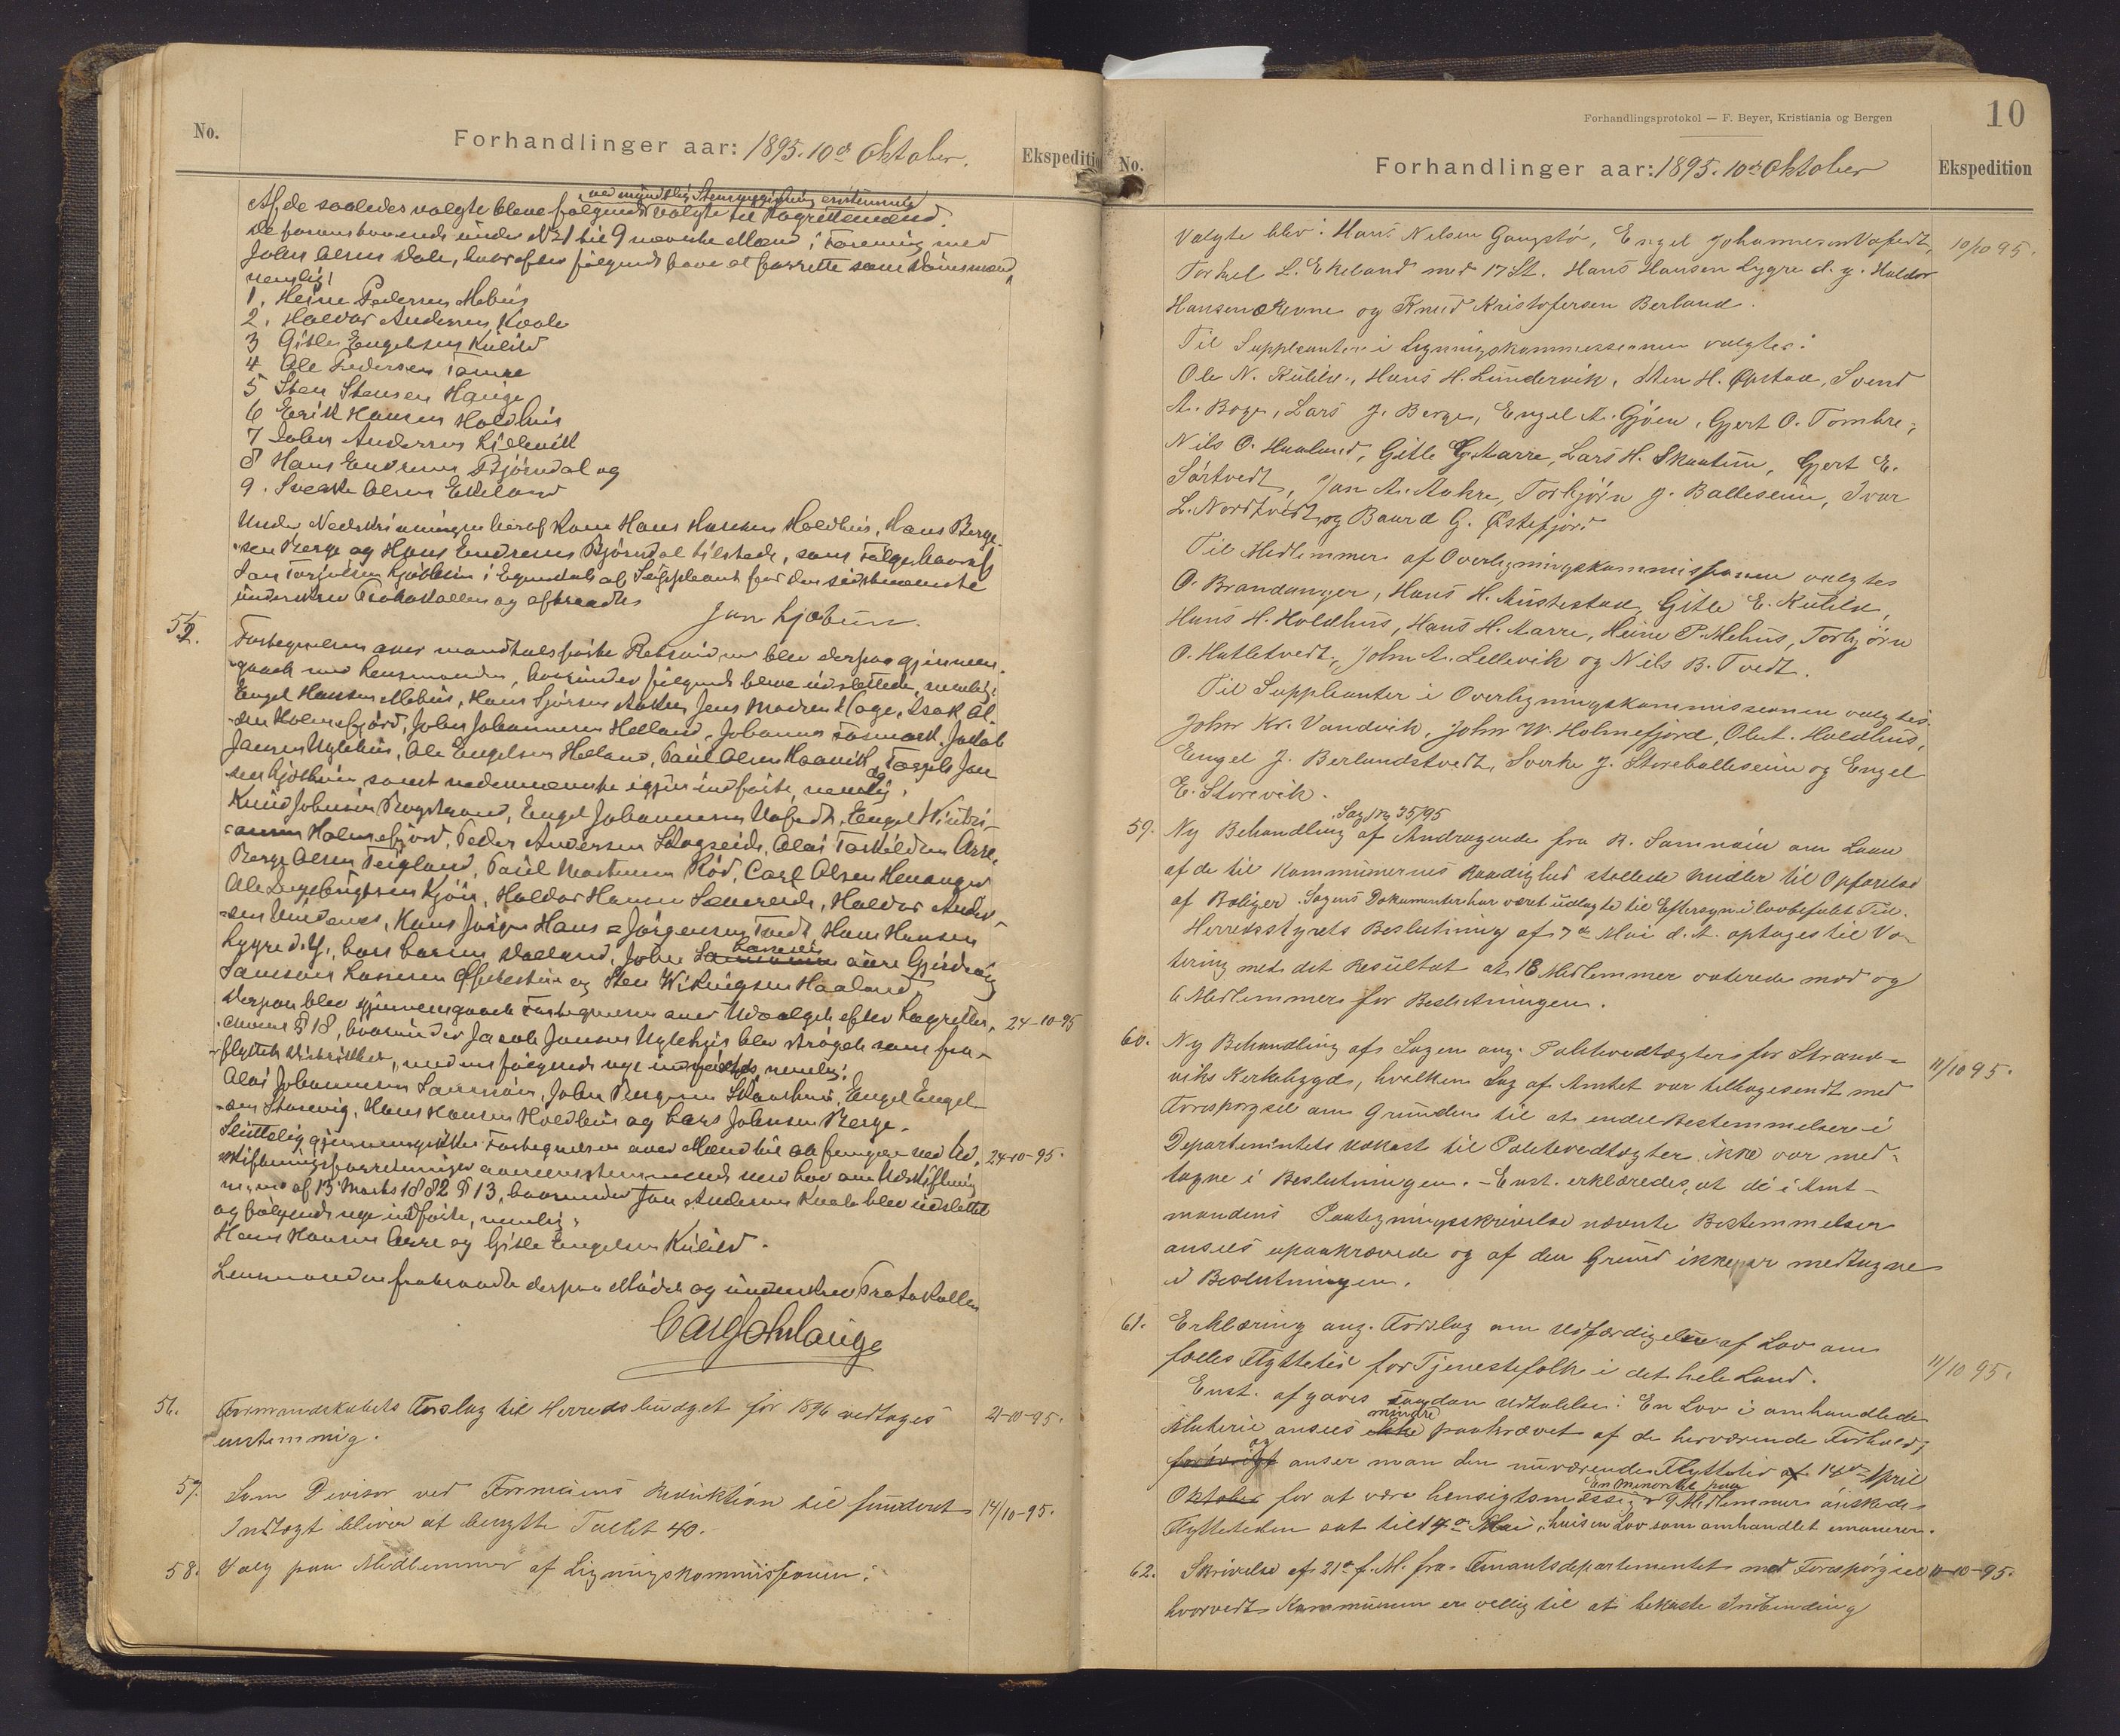 No.
Forhandlinger aar: 1895. 10de Oktober.
Ekspeditio
ved mundtlig Stemmegivning enstemmig
Af de saaledes valgte bleve følgende valgte til Lagrettemænd
de foranstaaende under No 1 til 9 nævnte Mænd i Forening med
John Olsen Dale, hvorefter følgende have at forrette som Domsmænd,
nemlig:
1. Heine Pedersen Mehus
2. Haldor Andersen Kvale
3 Gitle Engelsen Kulild
4 Ole Pedersen Tombre
5 Sten Stensen Hauge
6 Erik Hansen Holdhus
7 John Andersen Lillevik
8 Hans Endresen Bjørndal og
9. Sverke Olsen Ekeland
Under Nedskrivningen heraf kom Hans Hansen Holdhus, Hans Berge-
sen Berge og Hans Endresen Bjørndal tilstede, som Følge hvoraf
Jan Torgilsen Ljosheim i Egenskab af Suppleant for den sidstnævnte
underskrev Protokollen og aftraadte
Jan Ljosheim.
55.
Fortegnelsen over mandtalsførte Retsvidner blev derpaa gjennem-
gaaet med Lensmanden, hvorunder følgende bleve udslettede, nemlig:
Engel Hansen Mehus, Hans Sjursen Aaken, Jens Madsen Hage, Isak Ol-
sen Holmefjord, John Johannesen Helland, Johannes Tosmark, Jakob
Jansen Uglehus, Ole Engelsen Helland, Paul Olsen Haavik, og Torgils Jan
sen Ljosheim, samt nedennævnte igjen indførte, nemlig:
Knud Johnsen Rogstrand, Engel Johannesen Vafedt, Engel Vintri-
ansen Holmefjord, Peder Andersen Skogseide, Olai Torkildsen Arre,
Berge Olsen Teigland, Paul Mortensen Rød, Carl Olsen Henanger
Ole Ingebrigtsen Gjøn, Haldor Hansen Sævereide, Haldor Ander-
sen Vindenes, Hans Jørgen Hans = Jørgensen Tvedt, Hans Hansen
Lygre d. y., Lars Larsen Daland, John Larsen øvre Gjerdevig
Samson Larsen Øfstestein og Sten Vikingsen Haaland
Derpaa blev gjennemgaaet Fortegnelsen over Udvalgte efter Lagrettes-
24-10-95
lovens § 18, hvorunder Jacob Jansen Uglehus blev strøget som fra-
flyttet Distriktet, medens følgende nye indførtes, nemlig:
Olai Johannesen Samnøen, John Bergesen Skaathun, Engel Engel-
sen Storevig, Hans Hansen Holdhus og Lars Johnsen Berge.
Sluttelig gjennemgikkes Fortegnelsen over Mænd til at fungere ved Ud-
24-10-95.
skiftningsforretninger overensstemmende med Lov om Udskiftning
m. m. af 13 Marts 1882 § 13, hvorunder Jan Andersen Kvale blev udslettet
og følgende nye indførte, nemlig:
Hans Hansen Arre og Gitle Engelsen Kulild.
Lensmanden fratraadte derpaa Mødet og underskrev Protokollen
Carl Joh Lange
56.
Formandskabets Forslag til Herredsbudget for 1896 vedtages
21-10-95.
enstemmig.
57.
Som Divisor ved Formuens Reduktion til funderet
14/10-95.
Indtægt bliver at benytte Tallet 40.
58.
Valg paa Medlemmer af Ligningskommissionen:
Forhandlingsprotokol — F. Beyer, Kristiania og Bergen
10
No.
Forhandlinger aar: 1895. 10de Oktober
Ekspedition
Valgte blev: Hans Nelsen Gangstø, Engel Johannesen Vafedt,
10/10 95.
Torkel L. Ekeland med 17 St. Hans Hansen Lygre d. y. Haldor
Hansen Revne og Knud Kristofersen Berland.
Til Suppleanter i Ligningskommissionen valgtes:
Ole N. Kulild, Hans H. Lundervik, Sten H. Opstad, Svend
A. Boge, Lars J. Berge, Engel A. Gjøen, Gjert O. Tombre,
Nils O. Haaland, Gitle G. Aarre, Lars H. Skaatun, Gjert E.
Sørtvedt, Jan A. Aakre, Torbjørn J. Balleseim, Ivar
L. Nordtvedt og Baard G. Østefjord
Til Medlemmer af Overligningskommissionen valgtes
O. Brandanger, Hans H. Mustestad, Gitle E. Kulild,
Hans H. Holdhus, Hans H. Aarre, Heine P. Mehus, Torbjørn
O. Hatletvedt, John A. Lillevik og Nils B. Tvedt.
Til Suppleanter i Overligningskommissionen valgtes:
John Kr. Vandvik, John W. Holmefjord, Ole A. Holdhus,
Engel J. Berlandstvedt, Sverke J. Storeballeseim og Engel
E. Storevik.
Sag No 35/95
59.
Ny Behandling af Andragende fra R. Samnøen om Laan
af de til Kommunernes Raadighed stillede Midler til Opførelse
af Boliger. Sagens Dokumenter har været udlagte til Eftersyn i lovbefalt Tid.
Herredsstyrets Beslutning af 7de Mai d. A. optages til Vo-
tering med det Resultat at 18 Medlemmer voterede mod og
6 Medlemmer for Beslutningen.
60.
Ny Behandling af Sagen ang. Politivedtægter for Strand-
11/10 95.
viks Kirkebygd, hvilken Sag af Amtet var tilbagesendt med
Forespørgsel om Grunden til at endel Bestemmelser i
Departementets Udkast til Politivedtægter ikke var med-
tagne i Beslutningen. — Enst. erklæredes, at de i Amt-
mandens Paategningsskrivelse nævnte Bestemmelser
ansees upaakrævede og af den Grund ikke var medtagne
i Beslutningen.
61.
Erklæring ang. Forslag om Udfærdigelse af Lov om
11/10 95.
fælles Flyttetid for Tjenestefolk i det hele Land.
Enst. afgaves saadan Udtalelse: En Lov i omhandlede
mindre
Materie ansees ikke paakrævet af de herværende Forhold,
og
forøvrigt anser man den nuværende Flyttetid af 14de April
En Minoritet paa
Oktober for at være hensigtsmæssig 9 Medlemmer ønskede
Flyttetiden sat til 14de Mai, hvis en Lov som omhandlet emanerer.
62.
Skrivelse af 21de f. M. fra Finantsdepartementet med Forespørgsel
11-10-95.
hvorvidt Kommunen er villig til at bekoste Indbinding